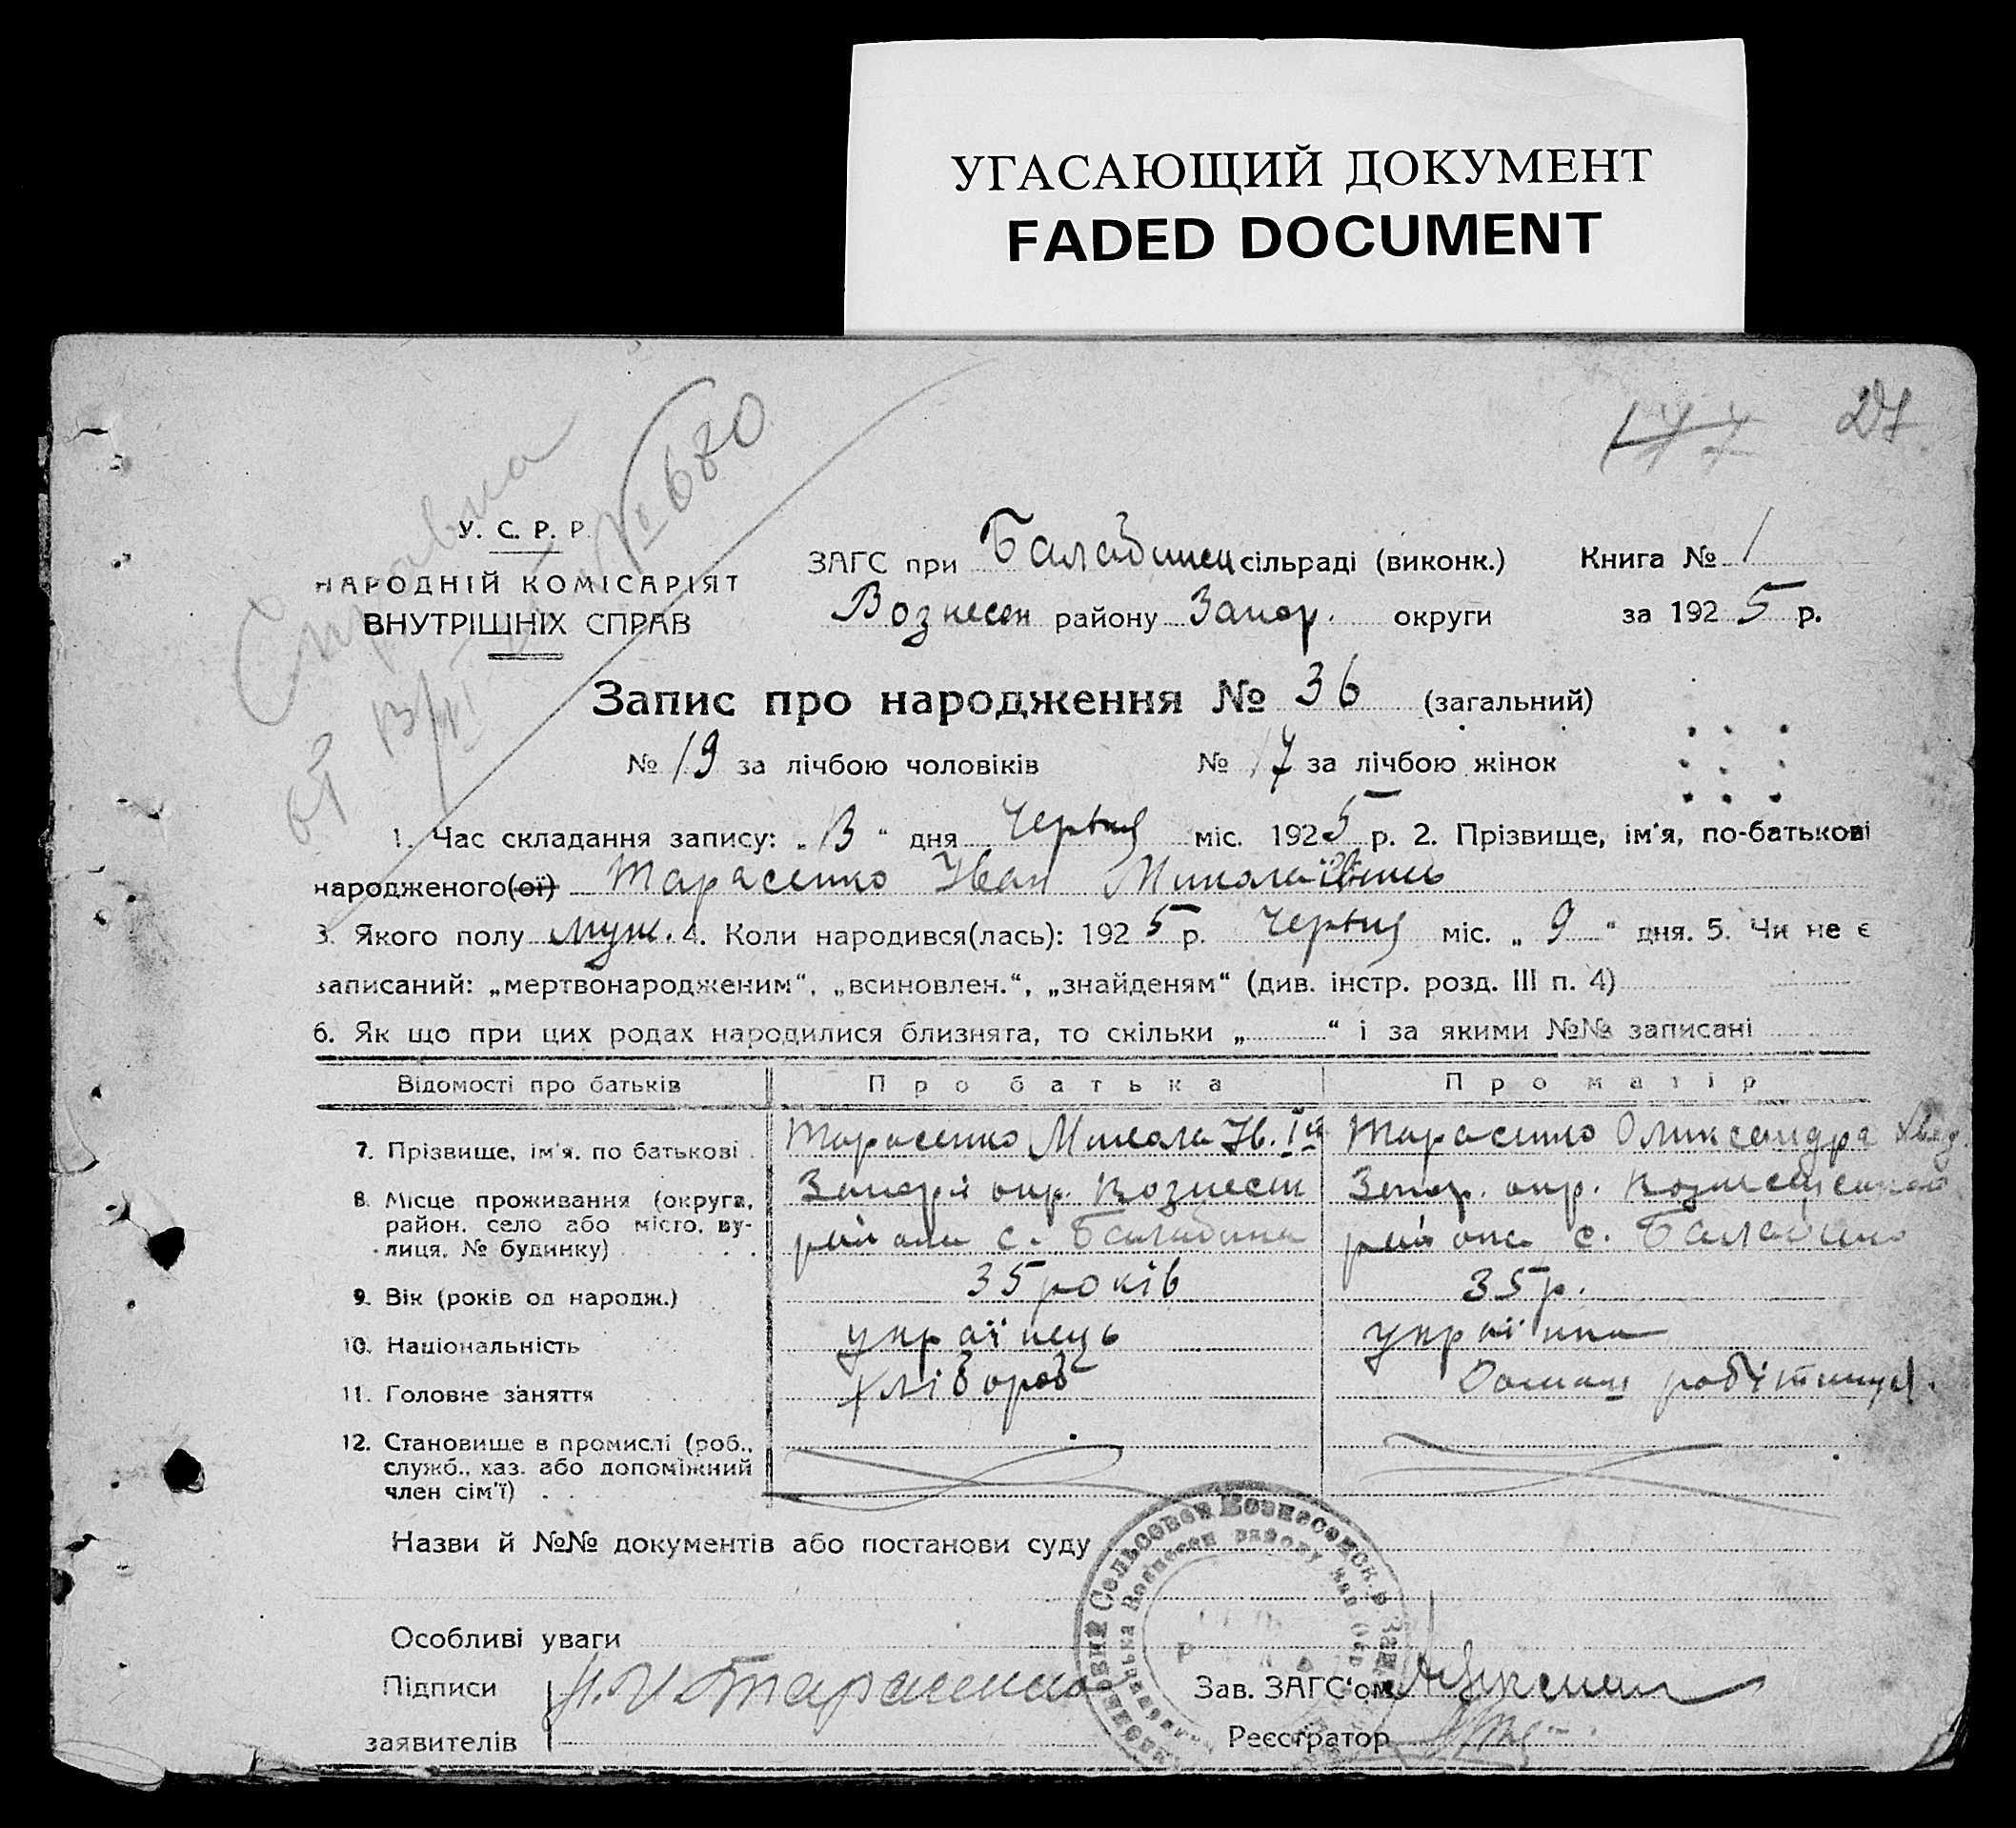 УГАСАЮЩИЙ ДОКУМЕНТ
FADED DOCUMENT
177 27
Справка
от 13/VI № 680
У. С. Р. Р.
НАРОДНІЙ КОМІСАРІЯТ
ВНУТРІШНІХ СПРАВ
ЗАГС при Балабинск сільраді (виконк.) Книга № 1
Вознесен району Запор. округи за 1925 р.
Запис про народження № 36 (загальний)
№ 19 за лічбою чоловіків № 17 за лічбою жінок
1. Час складання запису: „13“ дня Червня міс. 1925 р. 2. Прізвище, ім'я, по-батькові
народженого(ої) Тарасенко Іван Миколаївич
3. Якого полу муж. 4. Коли народився(лась): 1925 р. Червня міс. „9“ дня. 5. Чи не є
записаний: „мертвонародженим“, „всиновлен.“, „знайденям“ (див. інстр. розд. III п. 4)
6. Як що при цих родах народилися близнята, то скільки „ “ і за якими №№ записані
Відомості про батьків Про батька Про матір
7. Прізвище, ім'я, по батькові Тарасенко Микола Ів. Тарасенко Оликсандра Хвед.
8. Місце проживання (округа, район, село або місто, ву-лиця, № будинку)
окр. Вознесен
району с. Балабина
Запор. окр. Вознесенского
району с. Балабино
9. Вік (років од народж.) 35 років 35 р.
10. Національність українець українка
11. Головне заняття хлібороб робітниця.
12. Становище в промислі (роб.,
служб., хаз. або допоміжний
член сім'ї)
Назви й №№ документів або постанови суду
Особливі уваги
Підписи Тарасенко Зав. ЗАГС'ом
заявителів Реєстратор
Сельсовет Вознесенск. р. Зап.
Вознесен району